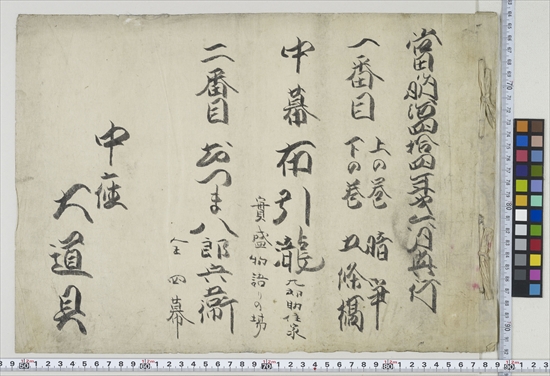 當明治四拾四年第六月興行
一番目 上の巻 暗争
下の巻 五條橋
中幕 布引瀧 九郎助住家
實盛物語りの場
二番目 おつま八郎兵衛
全四幕
中座
大道具